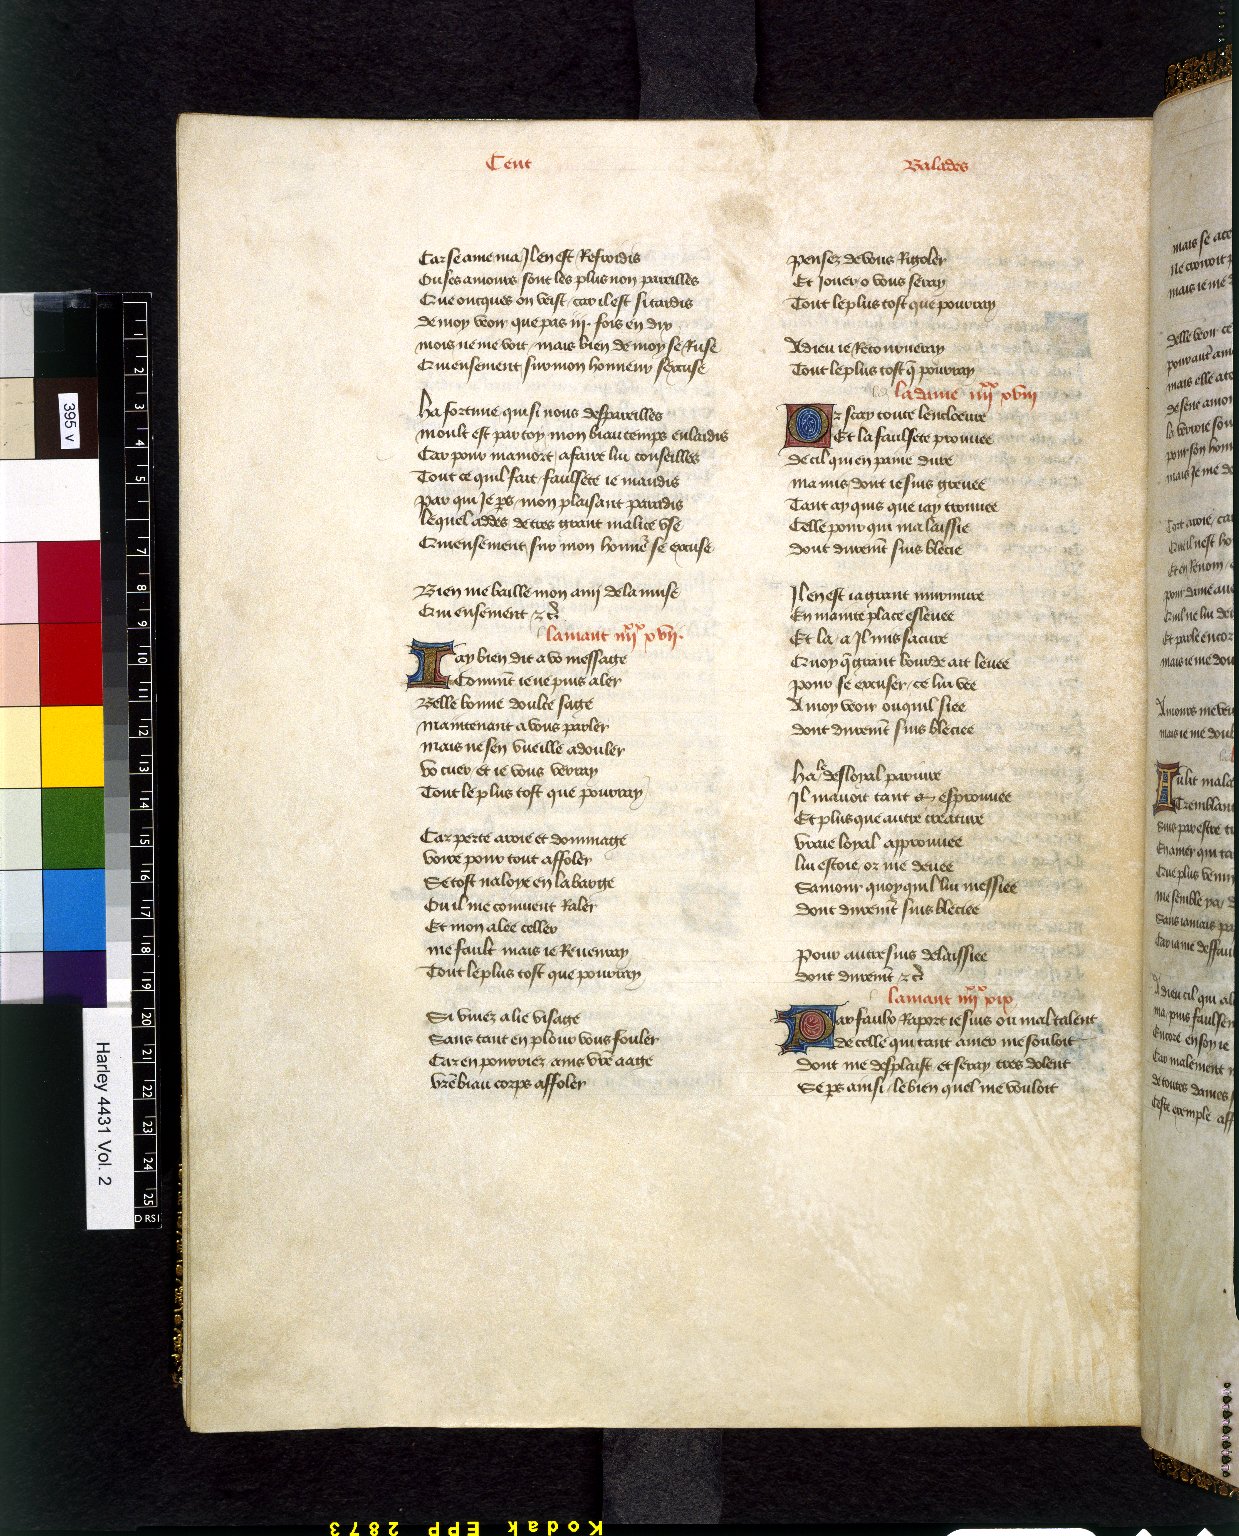 Cent
Balades
Car se ame ma Il en est Refroidis
Ou ses amours sont les plus non pareilles
Que oncques on veist, car il est si tardis
de moy veoir que pas iij. fois en dix
mois ne me voit, mais bien de moy se Ruse
Qui ensement sur mon honneur sexcuse
Ha fortune qui si nous despareilles
moult est par toy mon biau temps enlaidis
Car pour ma mort, a faire lui conseilles
Tout ce quil fait, faulsete ie maudis
par qui Je ps mon plaisant paradis
lequel addes de tres grant malice vse
Qui ensement sur mon honneˀ se excuse
Bien me baille mon ami de la muse
Qui ensement ⁊ c̃
lamant iiijˣˣ xvij.
Iay bien dit a vo message
Commẽt ie ne puis aler
Belle bonne doulce sage
maintenant a vous parler
mais ne sen vueille adouler
vo cuer et ie vous verray
Tout le plus tost que pourray
Car perte aroie et dommage
voire pour tout affoler
Se tost naloye en la barge
Ou il me convient Raler
Et mon alee celler
me fault mais ie Revenray
Tout le plus tost que pourray
Si vivez a lie visage
Sans tant en plour vous fouler
Car en pourriez ains vr̃e aage
vr̃e biau corps affoler
pensez de vous Rigoler
Et Jouer o vous seray
Tout le plus tost que pourray
Adieu ie Retourneray
Tout le plus tost q̃ pourray
la dame iiijˣˣ xviij
Or scay toute lencloeure
Et la faulsete prouvee
de cil qui en paine dure
ma mis, dont ie suis grevee
Tant ay quis que iay trouvee
Celle pour qui ma laissie
dont duremẽt suis blecie
Il en est ia grant murmure
En mainte place eslevee
Et la, a Il mis sa cure
Quoy q̃ grant bourde ait levee
pour se excuser, ce lui vee
A moy veoir ou quil siee
dont duremẽt suis bleciee
Ha desloyal pariure
Il mavoit tant esprouvee
Et plus que autre creature
vraie loyal approuvee
lui estoie, or me devee
Samour quoy quil lui messiee
dont duremẽt suis bleciee
Pour autre suis delaissiee
dont duremẽt ⁊ c̃
lamant iiijˣˣ xix
Par faulx Raport ie suis ou mal talent
de celle qui tant amer me souloit
dont me desplaist et seray tres dolent
Se ps ainsi, le bien quel me vouloit
395 v
Harley 4431 Vol. 2
1
2
3
4
5
6
7
8
9
10
11
12
13
14
15
16
17
18
19
20
21
22
23
24
25
Kodak EPP 2873